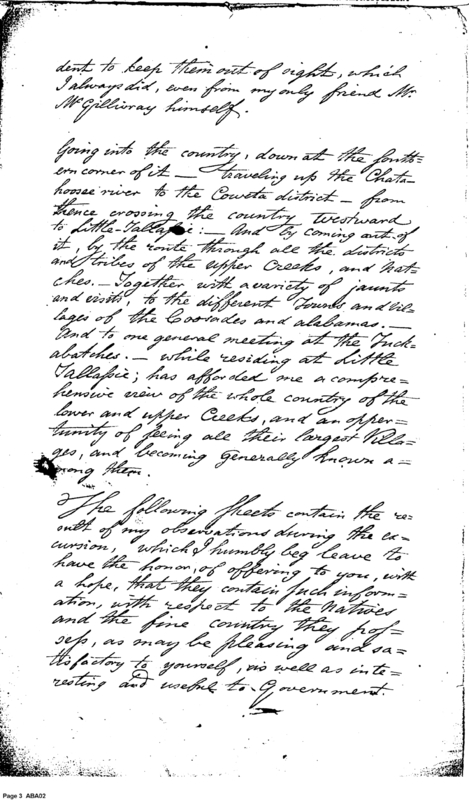 dent to keep them out of sight, which
I always did, even from my only friend Mr.
McGillivray himself.
Going into the country, down at the south=
ern corner of it — traveling up the Chata=
hoosee river to the Coweta district — from
thence crossing the country Westward
to Little-Tallassie: — And by coming out of
it, by the route through all the districts
and tribes of the upper Creeks, and Nat=
ches. — Together with a variety of jaunts
and visits, to the different Towns and Vil=
lages of the Coosades and alabamas. —
And to one general meeting at the Tuck=
abatches. — while residing at Little
Tallassie; has afforded me a compre=
hensive view of the whole country of the
lower and upper Creeks, and an opper=
tunity of seeing all their largest Villa=
ges, and becoming generally known a=
mong them.
The following sheets contain the re=
sult of my observations during the ex=
cursion, which I humbly beg leave to
have the honor, of offering to you, with
a hope, that they contain such inform=
ation, with respect to the Natives
and the fine country they pos=
sess, as may be pleasing and sa=
tisfactory to yourself, as well as inte=
resting and useful to Government.
Page 3 ABA02